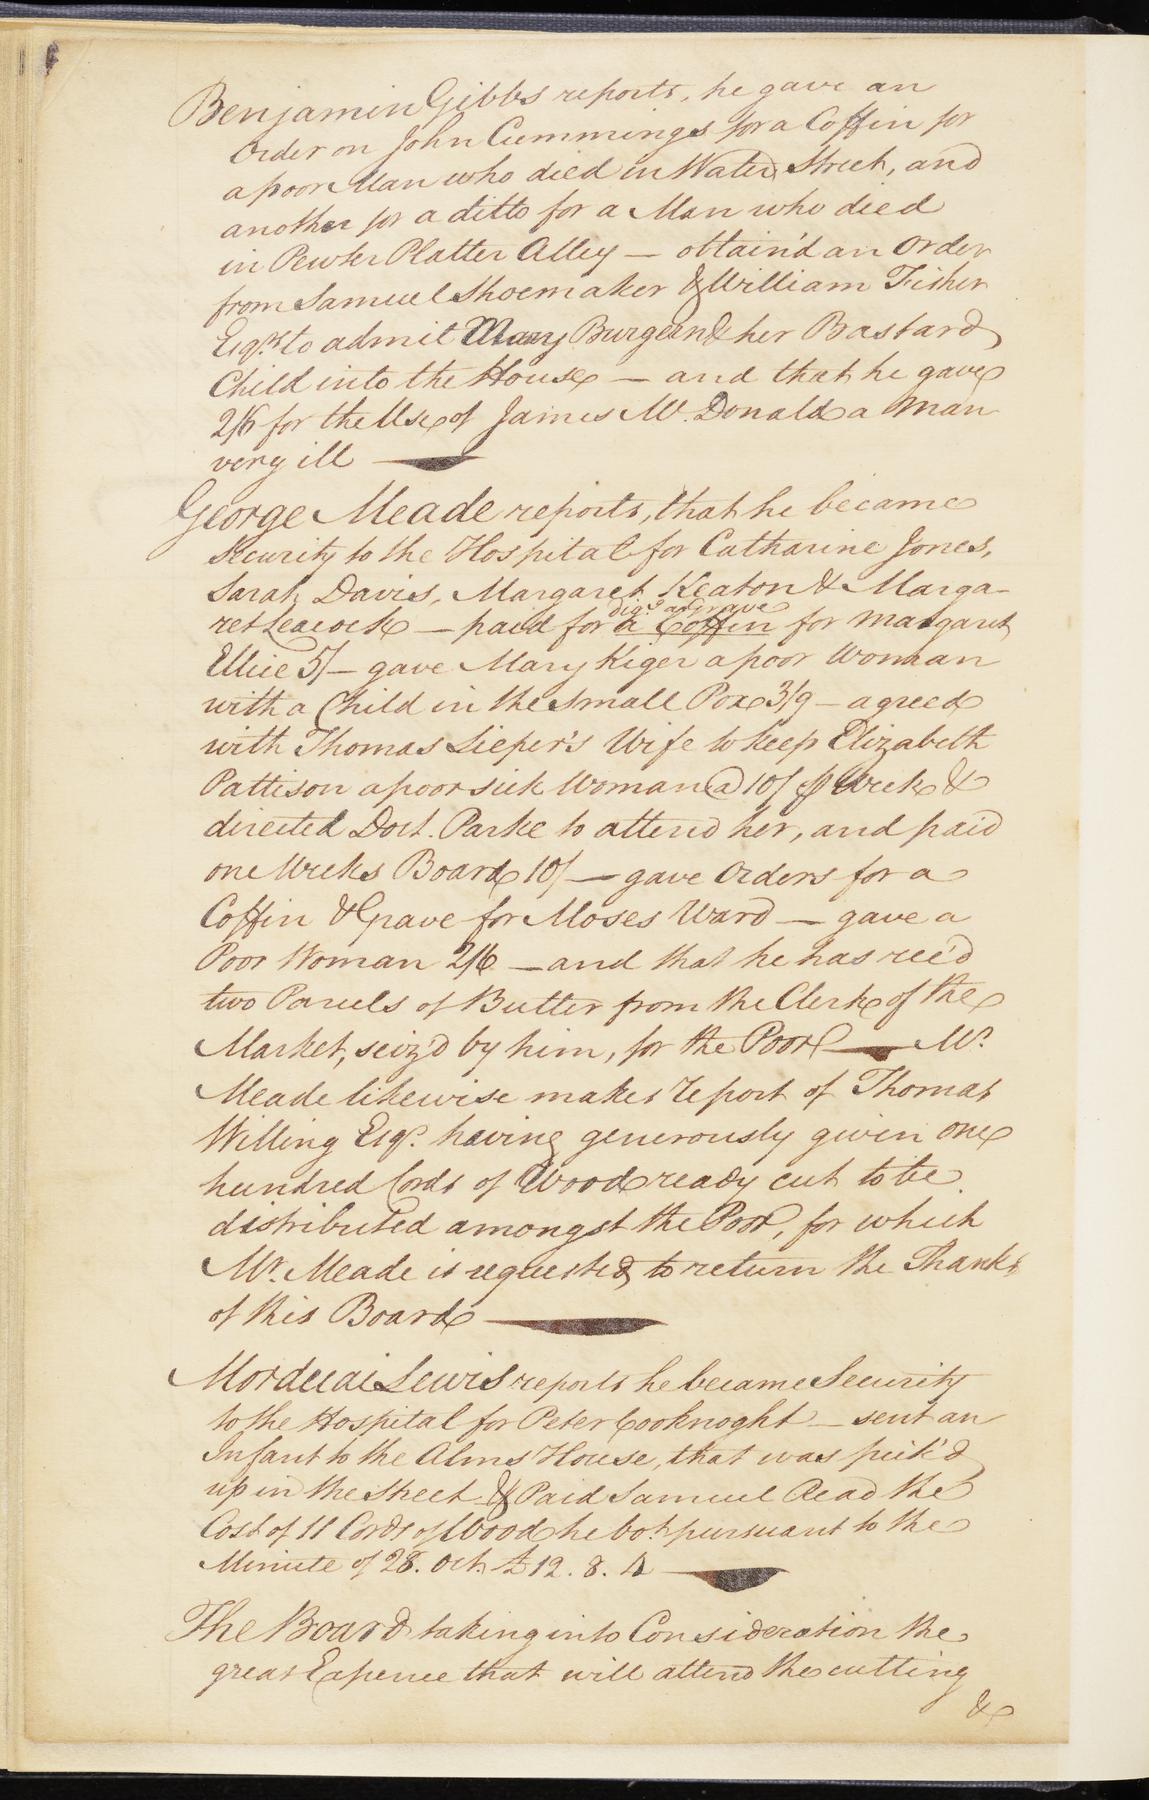 Benjamin Gibbs reports, he gave an
Order on John Cummings for a Coffin for
a poor Man who died in Water Street, and
another for a ditto for a Man who died
in Pewter Platter Alley — obtain'd an Order
from Samuel Shoemaker & William Fisher
Esqrs. to admit Mary Burge and her Bastard
Child into the House — and that he gave
2/6 for the Use of James Mc. Donald a Man
very ill —
George Meade reports, that he became
Security to the Hospital for Catharine Jones,
Sarah Davis, Margaret Keaton & Marga-
digg. a Grave
ret Leacock — paid for a Coffin for Margaret
Ellice 5/ — gave Mary Kiger a poor Woman
with a Child in the Small Pox 3/9 — agreed
with Thomas Lieper's Wife to keep Elizabeth
Pattison a poor sick Woman @ 10/ p Week &
directed Doct. Parke to attend her, and paid
one Weeks Board 10/ — gave Orders for a
Coffin & Grave for Moses Ward — gave a
Poor Woman 2/6 — and that he has rec'd
two Parcels of Butter from the Clerk of the
Market, seiz'd by him, for the Poor — Mr.
Meade likewise makes report of Thomas
Willing Esqr. having generously given one
hundred Cords of Wood ready cut to be
distributed amongst the Poor, for which
Mr. Meade is requested to return the Thanks
of this Board —
Mordecai Lewis reports he became Security
to the Hospital for Peter Cooknoght — sent an
Infant to the Alms House, that was pick'd
up in the Street & Paid Samuel Read the
Cost of 11 Cords of Wood he bot. pursuant to the
Minute of 28. Oct. £12. 8. 4 —
The Board taking into Consideration the
great Expence that will attend the cutting
&